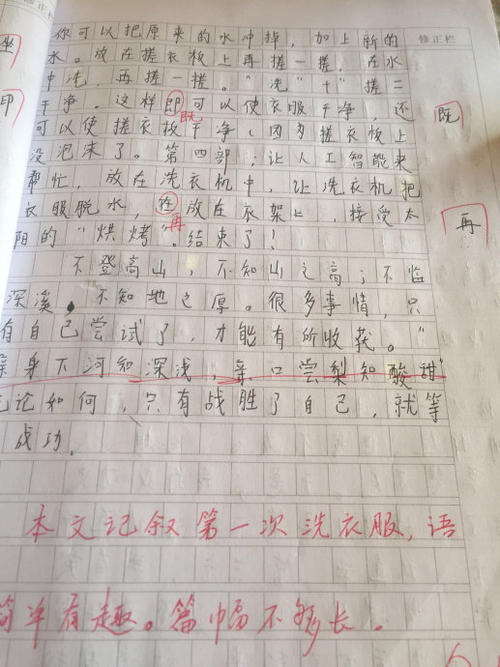 修正栏
你可以把原来的水冲掉，加上新的
水。放在搓衣板上再搓一搓，在水
中洗，再搓一搓。“洗”十“搓二
干净。这样即可以使衣服干净，还
既
既
可以使搓衣板干净（因为搓衣板上
印
没泡末了。第四部；让人工智能来
帮忙，放在洗衣机中，让洗衣机把
衣服脱水，在放在衣架上，接受太
再
再
阳的“烘烤”。结束了！
不登高山，不知山之高；不临
深溪，不知地之厚。很多事情，只
有自己尝试了，才能有所收获。“
亲身下河知深浅，亲口尝梨知酸甜”
无论如何，只有战胜了自己，就等
成功。
本文记叙第一次洗衣服，语
简单有趣。篇幅不够长。